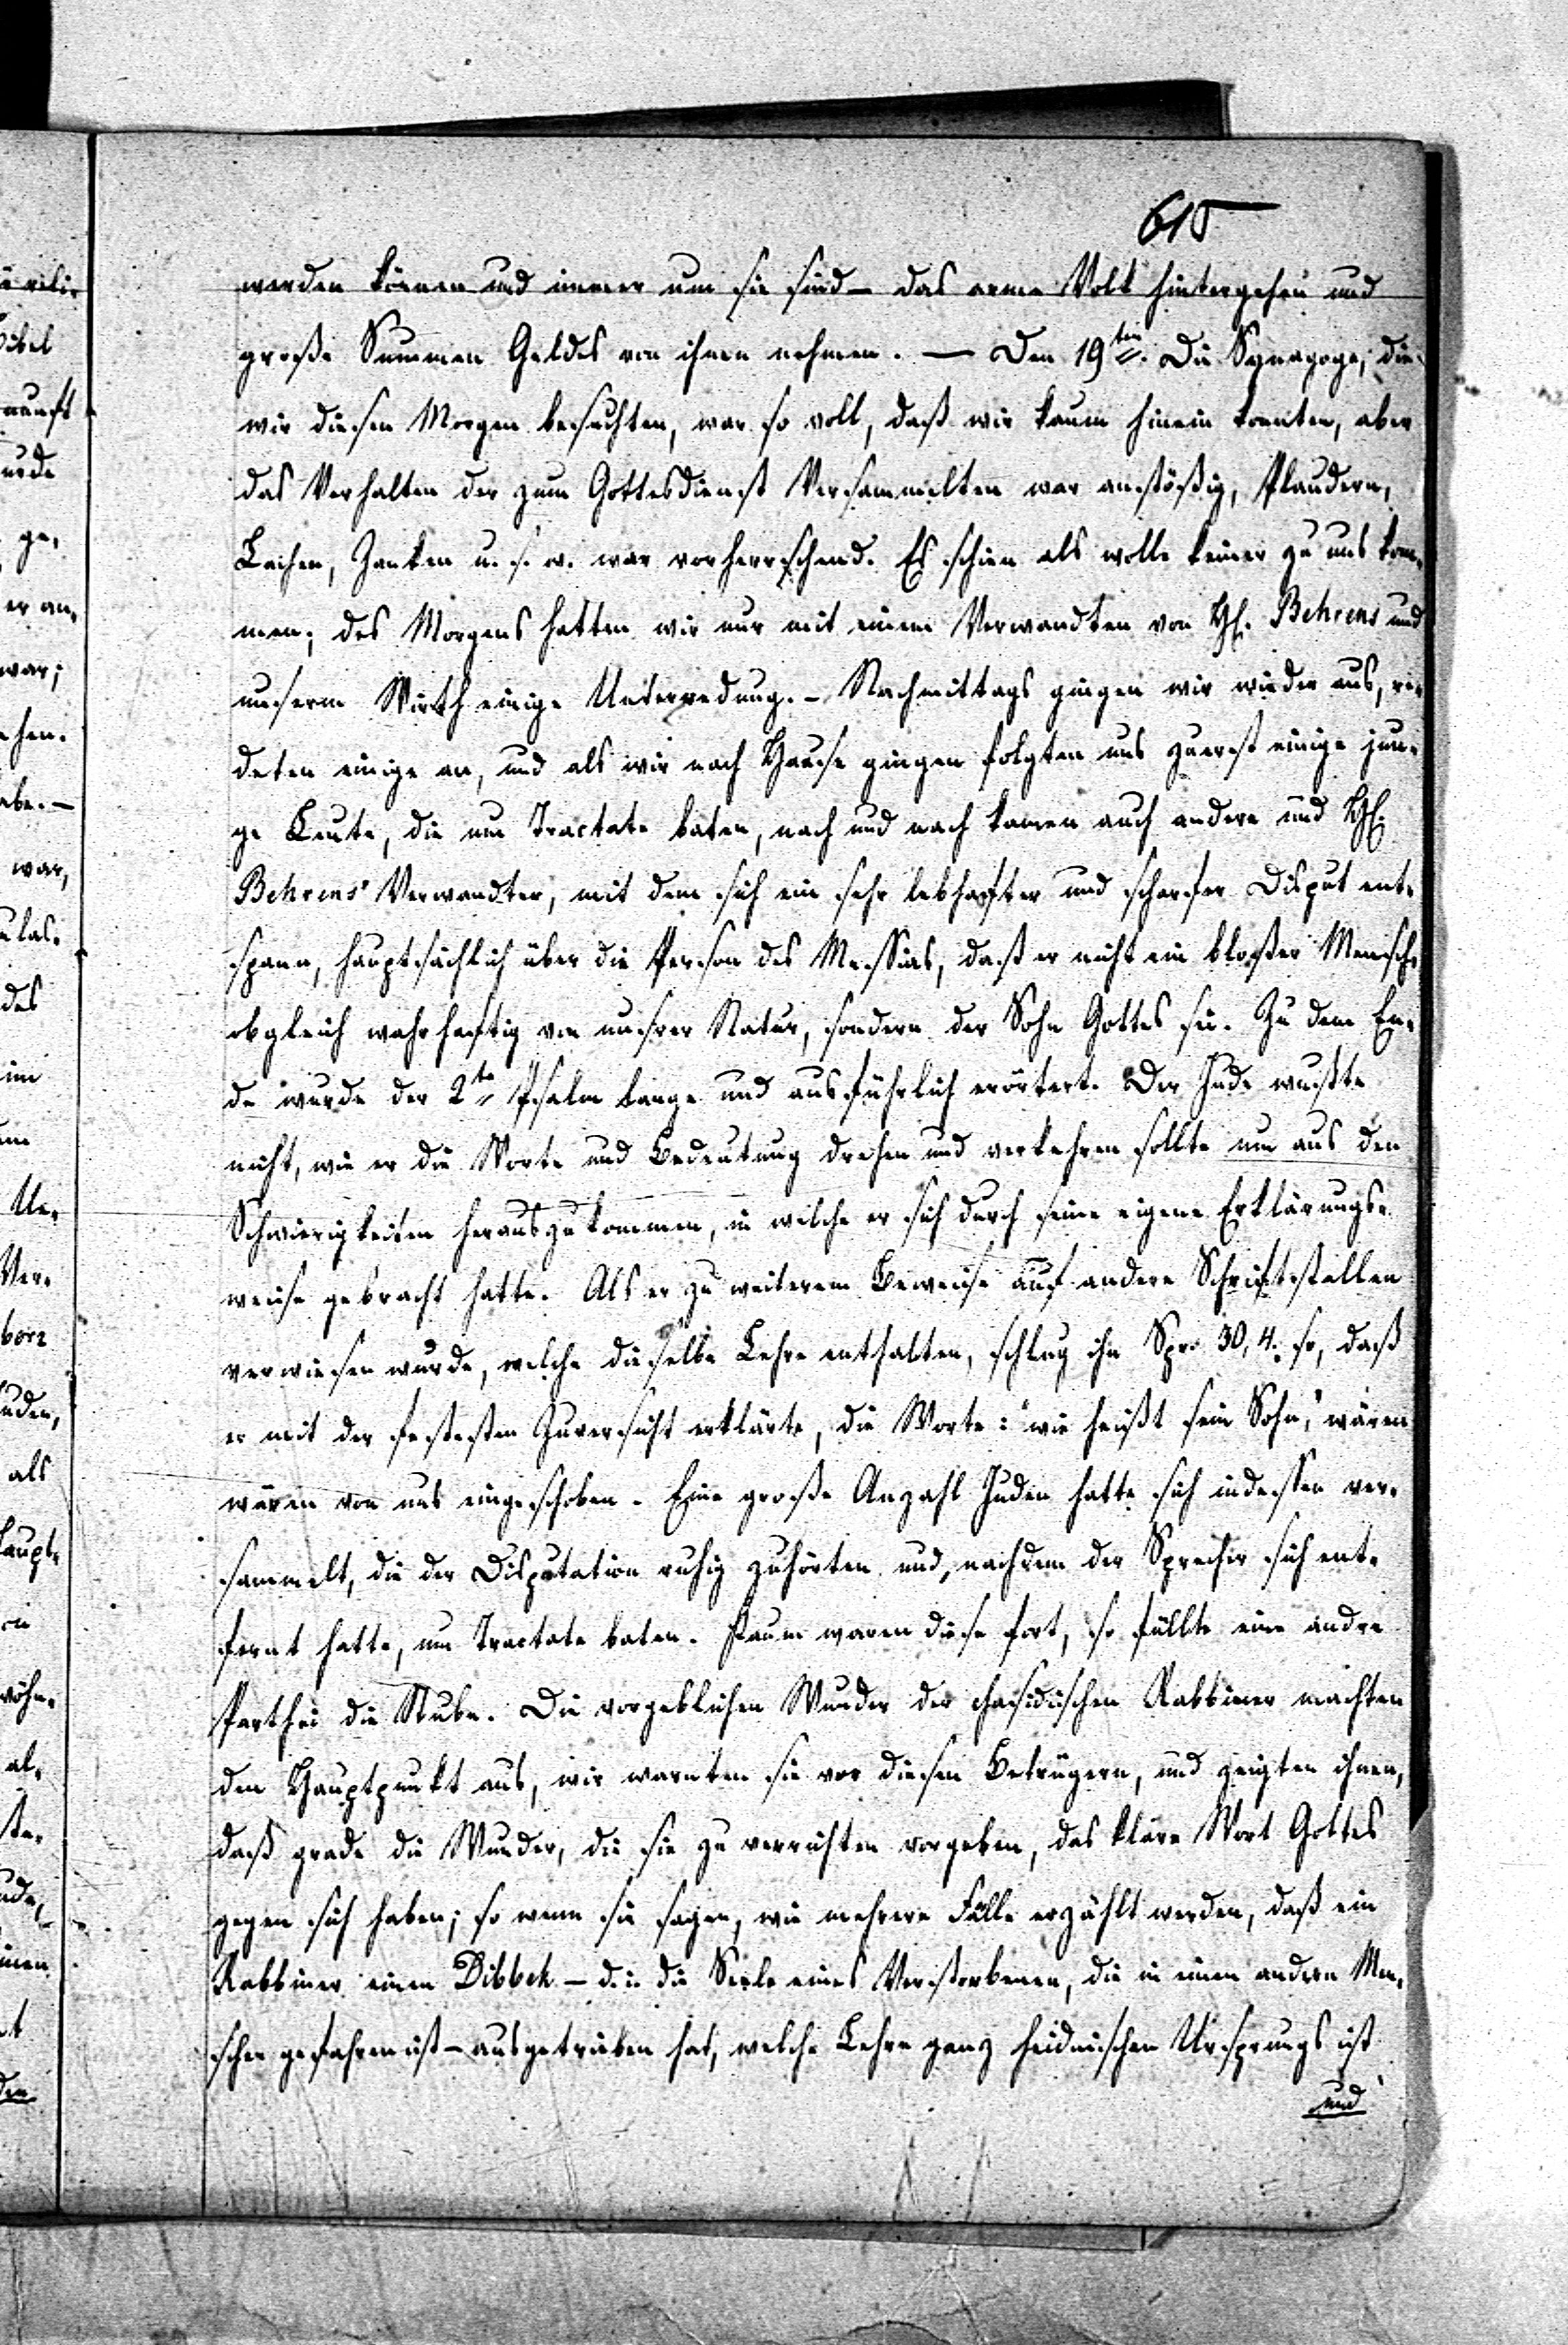 615
werden können und immer um sie sind – das arme Volk hintergehen und
große Summen Geldes von ihnen nehmen. — Den 19ten. Die Synagoge, die
wir diesen Morgen besuchten, war so voll, daß wir kaum hinein konnten, aber
das Verhalten der zum Gottesdienst Versammelten war anstößig, Plaudern,
Lachen, Zanken u. s. w. war vorherrschend. Es schien als wolle keiner zu uns kom-
men; des Morgens hatten wir nur mit einem Verwandten von H. Behrens und
unserm Wirth einige Unterredung. – Nachmittags gingen wir wieder aus, re-
deten einige an, und als wir nach Hause gingen folgten uns zuerst einige jun-
ge Leute, die um Tractate baten, nach und nach kamen auch andere und H.
Behrens' Verwandter, mit dem sich ein sehr lebhafter und scharfer Disput ent-
spann, hauptsächlich über die Person des Messias, daß er nicht ein bloßer Mensch,
obgleich wahrhaftig von unsrer Natur, sondern der Sohn Gottes sei. Zu dem En-
de wurde der 2te Psalm lange und ausführlich erörtert. Der Jude wußte
nicht, wie er die Worte und Bedeutung drehen und verkehren sollte um aus den
Schwierigkeiten herauszukommen, in welche er sich durch seine eigene Erklärungs-
weise gebracht hatte. Als er zu weiterem Beweise auf andere Schriftstellen
verwiesen wurde, welche dieselbe Lehre enthalten, schlug ihn Spr. 30,4. so, daß
er mit der festesten Zuversicht erklärte, die Worte: "wie heißt sein Sohn," wären
wären von uns eingeschoben. Eine große Anzahl Juden hatte sich indessen ver-
sammelt, die der Disputation ruhig zuhörten und, nachdem der Sprecher sich ent-
fernt hatte, um Tractate baten. Kaum waren diese fort, so füllte eine andre
Parthei die Stube. Die vorgeblichen Wunder der chasidischen Rabbiner machten
den Hauptpunkt aus, wir warnten sie vor diesen Betrügern, und zeigten ihnen,
daß grade die Wunder, die sie zu verrichten vorgeben, das klare Wort Gottes
gegen sich haben; so wenn sie sagen, wie mehrere Fälle erzählt werden, daß ein
Rabbiner einen Dibbek – d. i. die Seele eines Verstorbenen, die in einen andern Men-
schen gefahren ist – ausgetrieben hat, welche Lehre ganz heidnischen Ursprungs ist
und